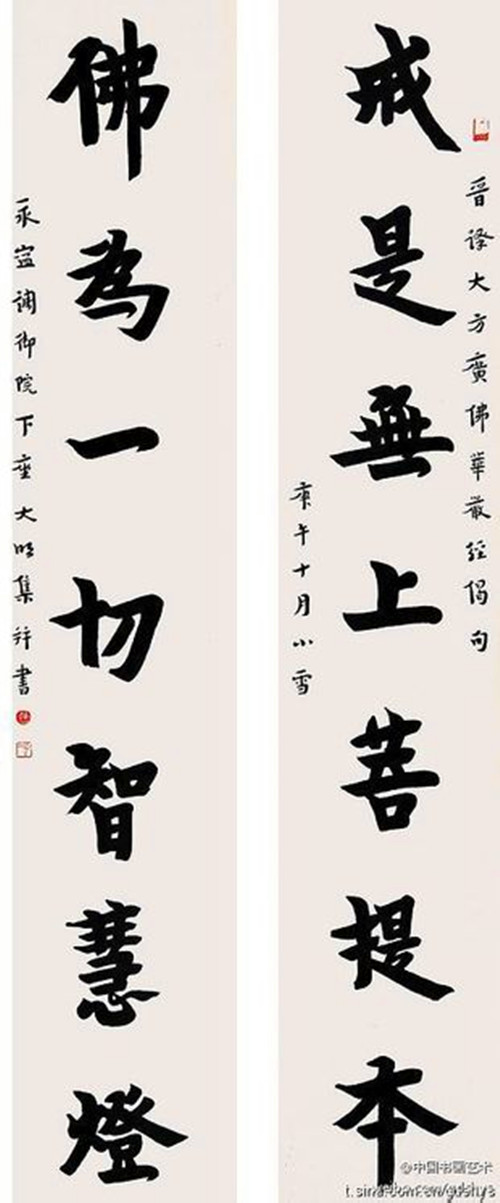 戒是無上菩提本
晉譯大方廣佛華嚴經偈句
庚午十月小雪
佛為一切智慧燈
永寧調御院下座大明集并書
@中国书画艺术